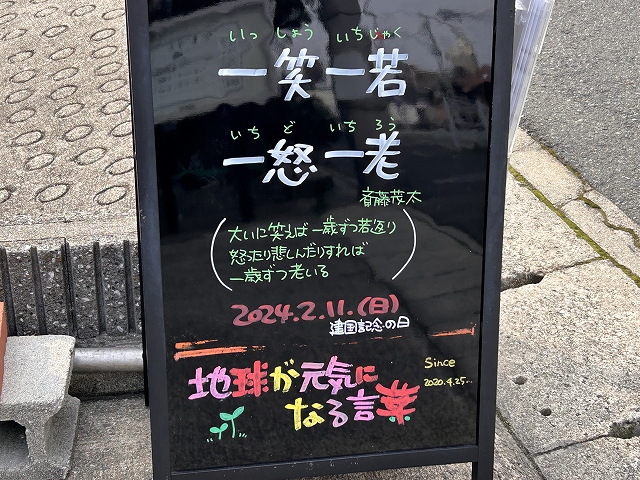 いっしょういちじゃく
一笑一若
いちどいちろう
一怒一老
斎藤茂太
(大いに笑えば一歳ずつ若返り
怒ったり悲しんだりすれば
一歳ずつ老いる)
2024.2.11.(日)
建国記念の日
地球が元気に
なる言葉
Since
2020.4.25...